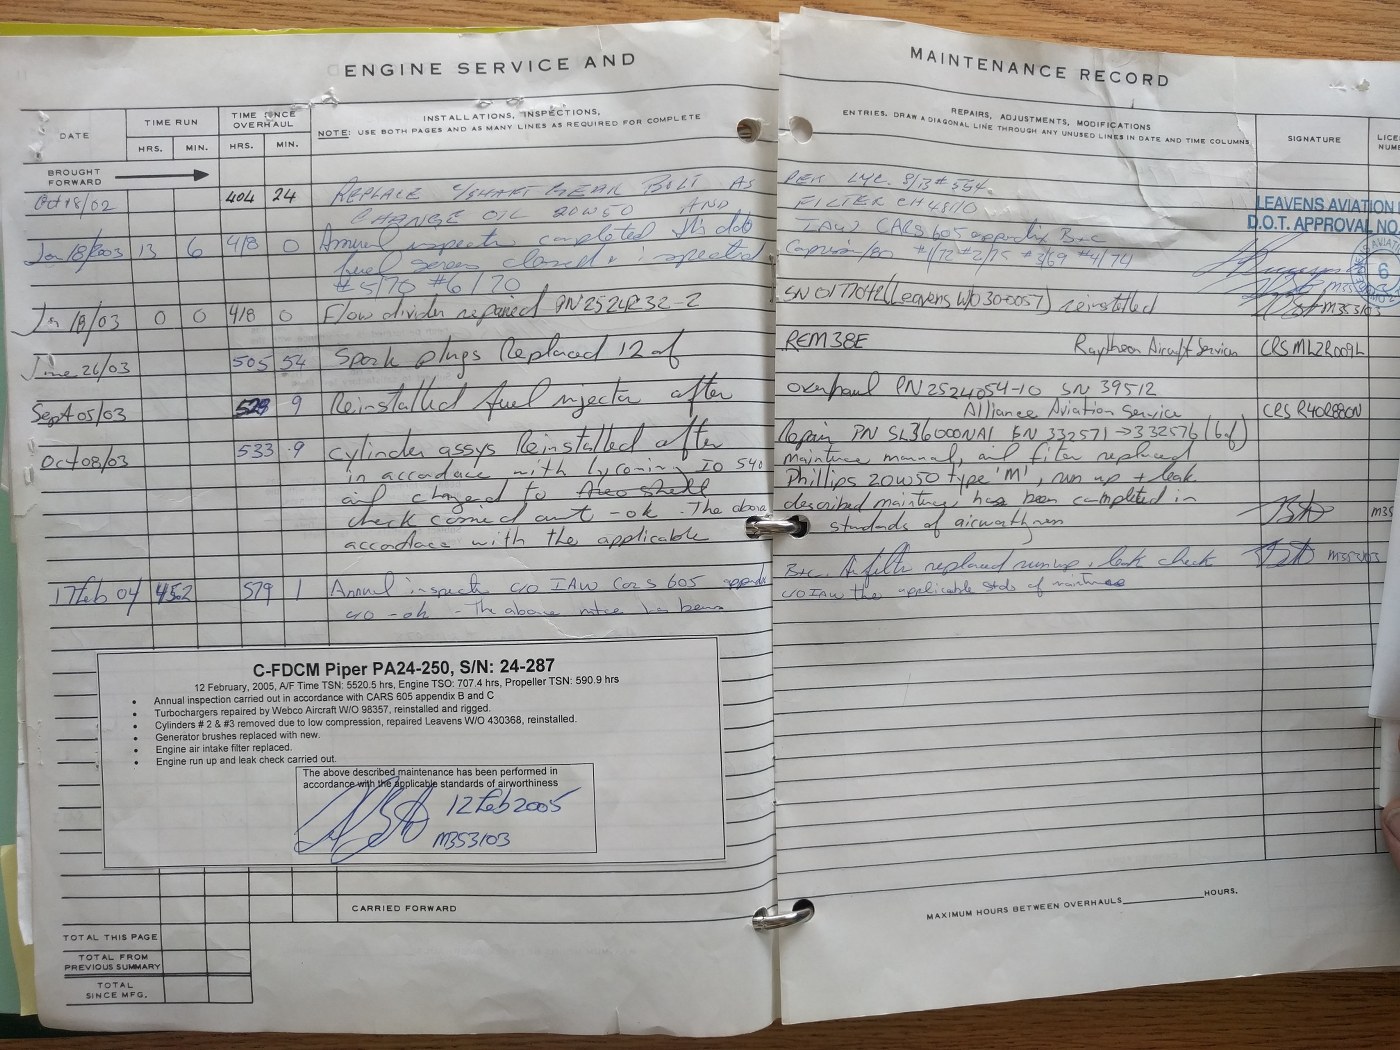 ENGINE SERVICE AND
MAINTENANCE RECORD
DATE
TIME RUN
HRS. MIN.
TIME SINCE OVERHAUL
HRS. MIN.
INSTALLATIONS, INSPECTIONS,
NOTE: USE BOTH PAGES AND AS MANY LINES AS REQUIRED FOR COMPLETE
REPAIRS, ADJUSTMENTS, MODIFICATIONS
ENTRIES. DRAW A DIAGONAL LINE THROUGH ANY UNUSED LINES IN DATE AND TIME COLUMNS
SIGNATURE
BROUGHT
FORWARD
Oct 18/02 404 24 REPLACE GEAR BOLT AS PER LYC. S/B # 554.
CHANGE OIL 20W50 AND FILTER CH48110
LEAVENS AVIATION
D.O.T. APPROVAL NO.
Jan 18/2003 13 6 418 0 Annual inspection completed this date IAW CARS 605 appendix B+C
fuel screens cleaned + inspected #1/72 #2/75 #3/69 #4/74
#5/70 #6/70
6
Jan 18/03 0 0 418 0 Flow divider repaired PN 2524232-2 SN 017704 (Leavens W/O 300057) reinstalled M353103
June 26/03 505 54 Spark plugs Replaced 12 of REM38E Raytheon Aircraft Services
Sept 05/03 529 9 Reinstalled fuel injector after overhaul PN 2524054-10 SN 39512
Alliance Aviation Service
Oct 08/03 533 .9 Cylinder assys Reinstalled after Repair PN SL36000NA1 SN 332571 → 332576 (6 of)
in accordance with lycoming IO 540 maintnce manual, oil filter replaced
and changed to Aero shell Phillips 20W50 type 'M', run up + leak
check carried out - ok. The above described maintnce has been completed in
accordance with the applicable standards of airworthiness
17 Feb 04 45.2 579 1 Annual inspect c/o IAW Cars 605 appendix B+C. filter replaced run up, leak check M353103
c/o - ok - The above has been c/o IAW the applicable stds of
C-FDCM Piper PA24-250, S/N: 24-287
12 February, 2005, A/F Time TSN: 5520.5 hrs, Engine TSO: 707.4 hrs, Propeller TSN: 590.9 hrs
• Annual inspection carried out in accordance with CARS 605 appendix B and C
• Turbochargers repaired by Webco Aircraft W/O 98357, reinstalled and rigged.
• Cylinders # 2 & #3 removed due to low compression, repaired Leavens W/O 430368, reinstalled.
• Generator brushes replaced with new.
• Engine air intake filter replaced.
• Engine run up and leak check carried out.
The above described maintenance has been performed in
accordance with the applicable standards of airworthiness
12 Feb 2005
M353103
CARRIED FORWARD
MAXIMUM HOURS BETWEEN OVERHAULS HOURS.
TOTAL THIS PAGE
TOTAL FROM
PREVIOUS SUMMARY
TOTAL
SINCE MFG.